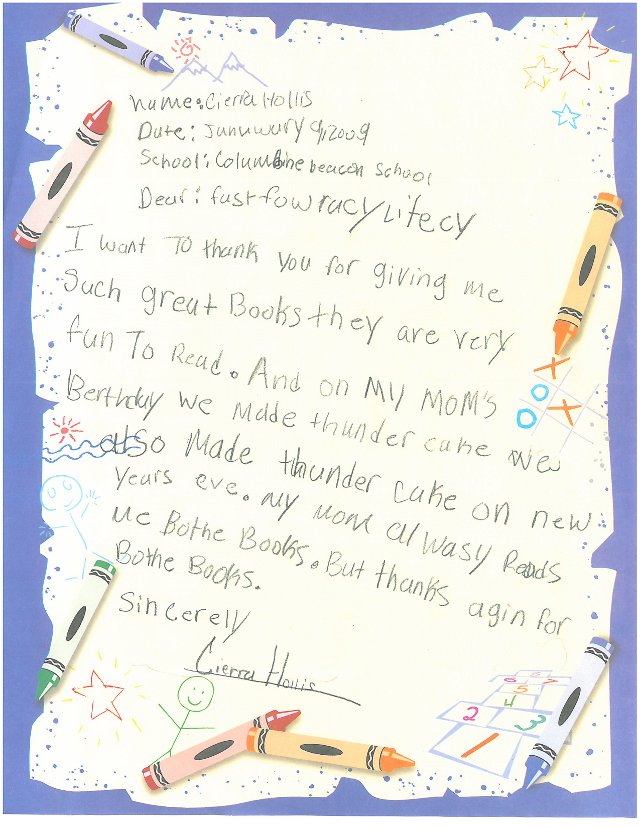 name: Cierra Hollis
Date: Januwary 9, 2009
School: Columbine beacon School
Dear: fast fowracy Litecy
I want To thank you for giving me
Such great Books they are very
fun To Read. And on MY MOM'S
Berthday we Made thunder cake we
also Made thunder cake on new
Years eve. my mom Alwasy Reads
me Bothe Books. But thanks agin for
Bothe Books.
Sincerelly
Cierra Hollis
6 7
5
4
2 3
1